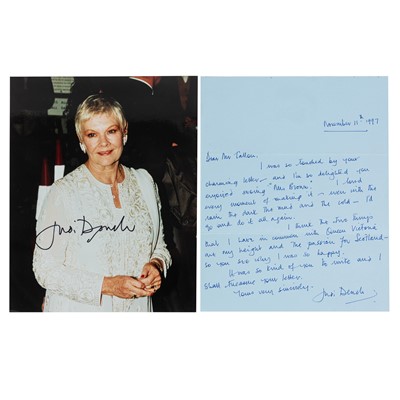 Judi Dench
November 11th 1997
Dear Mr Fallon,
I was so touched by your
charming letter and I'm so delighted you
enjoyed seeing "Mrs Brown". I loved
every moment of making it - even with the
rain the dark the mud and the cold - I'd
go and do it all again.
I think the two things
that I have in common with Queen Victoria
are my height and the passion for Scotland -
so you see why I was so happy.
It was so kind of you to write and I
shall treasure your letter.
Yours very sincerely,
Judi Dench